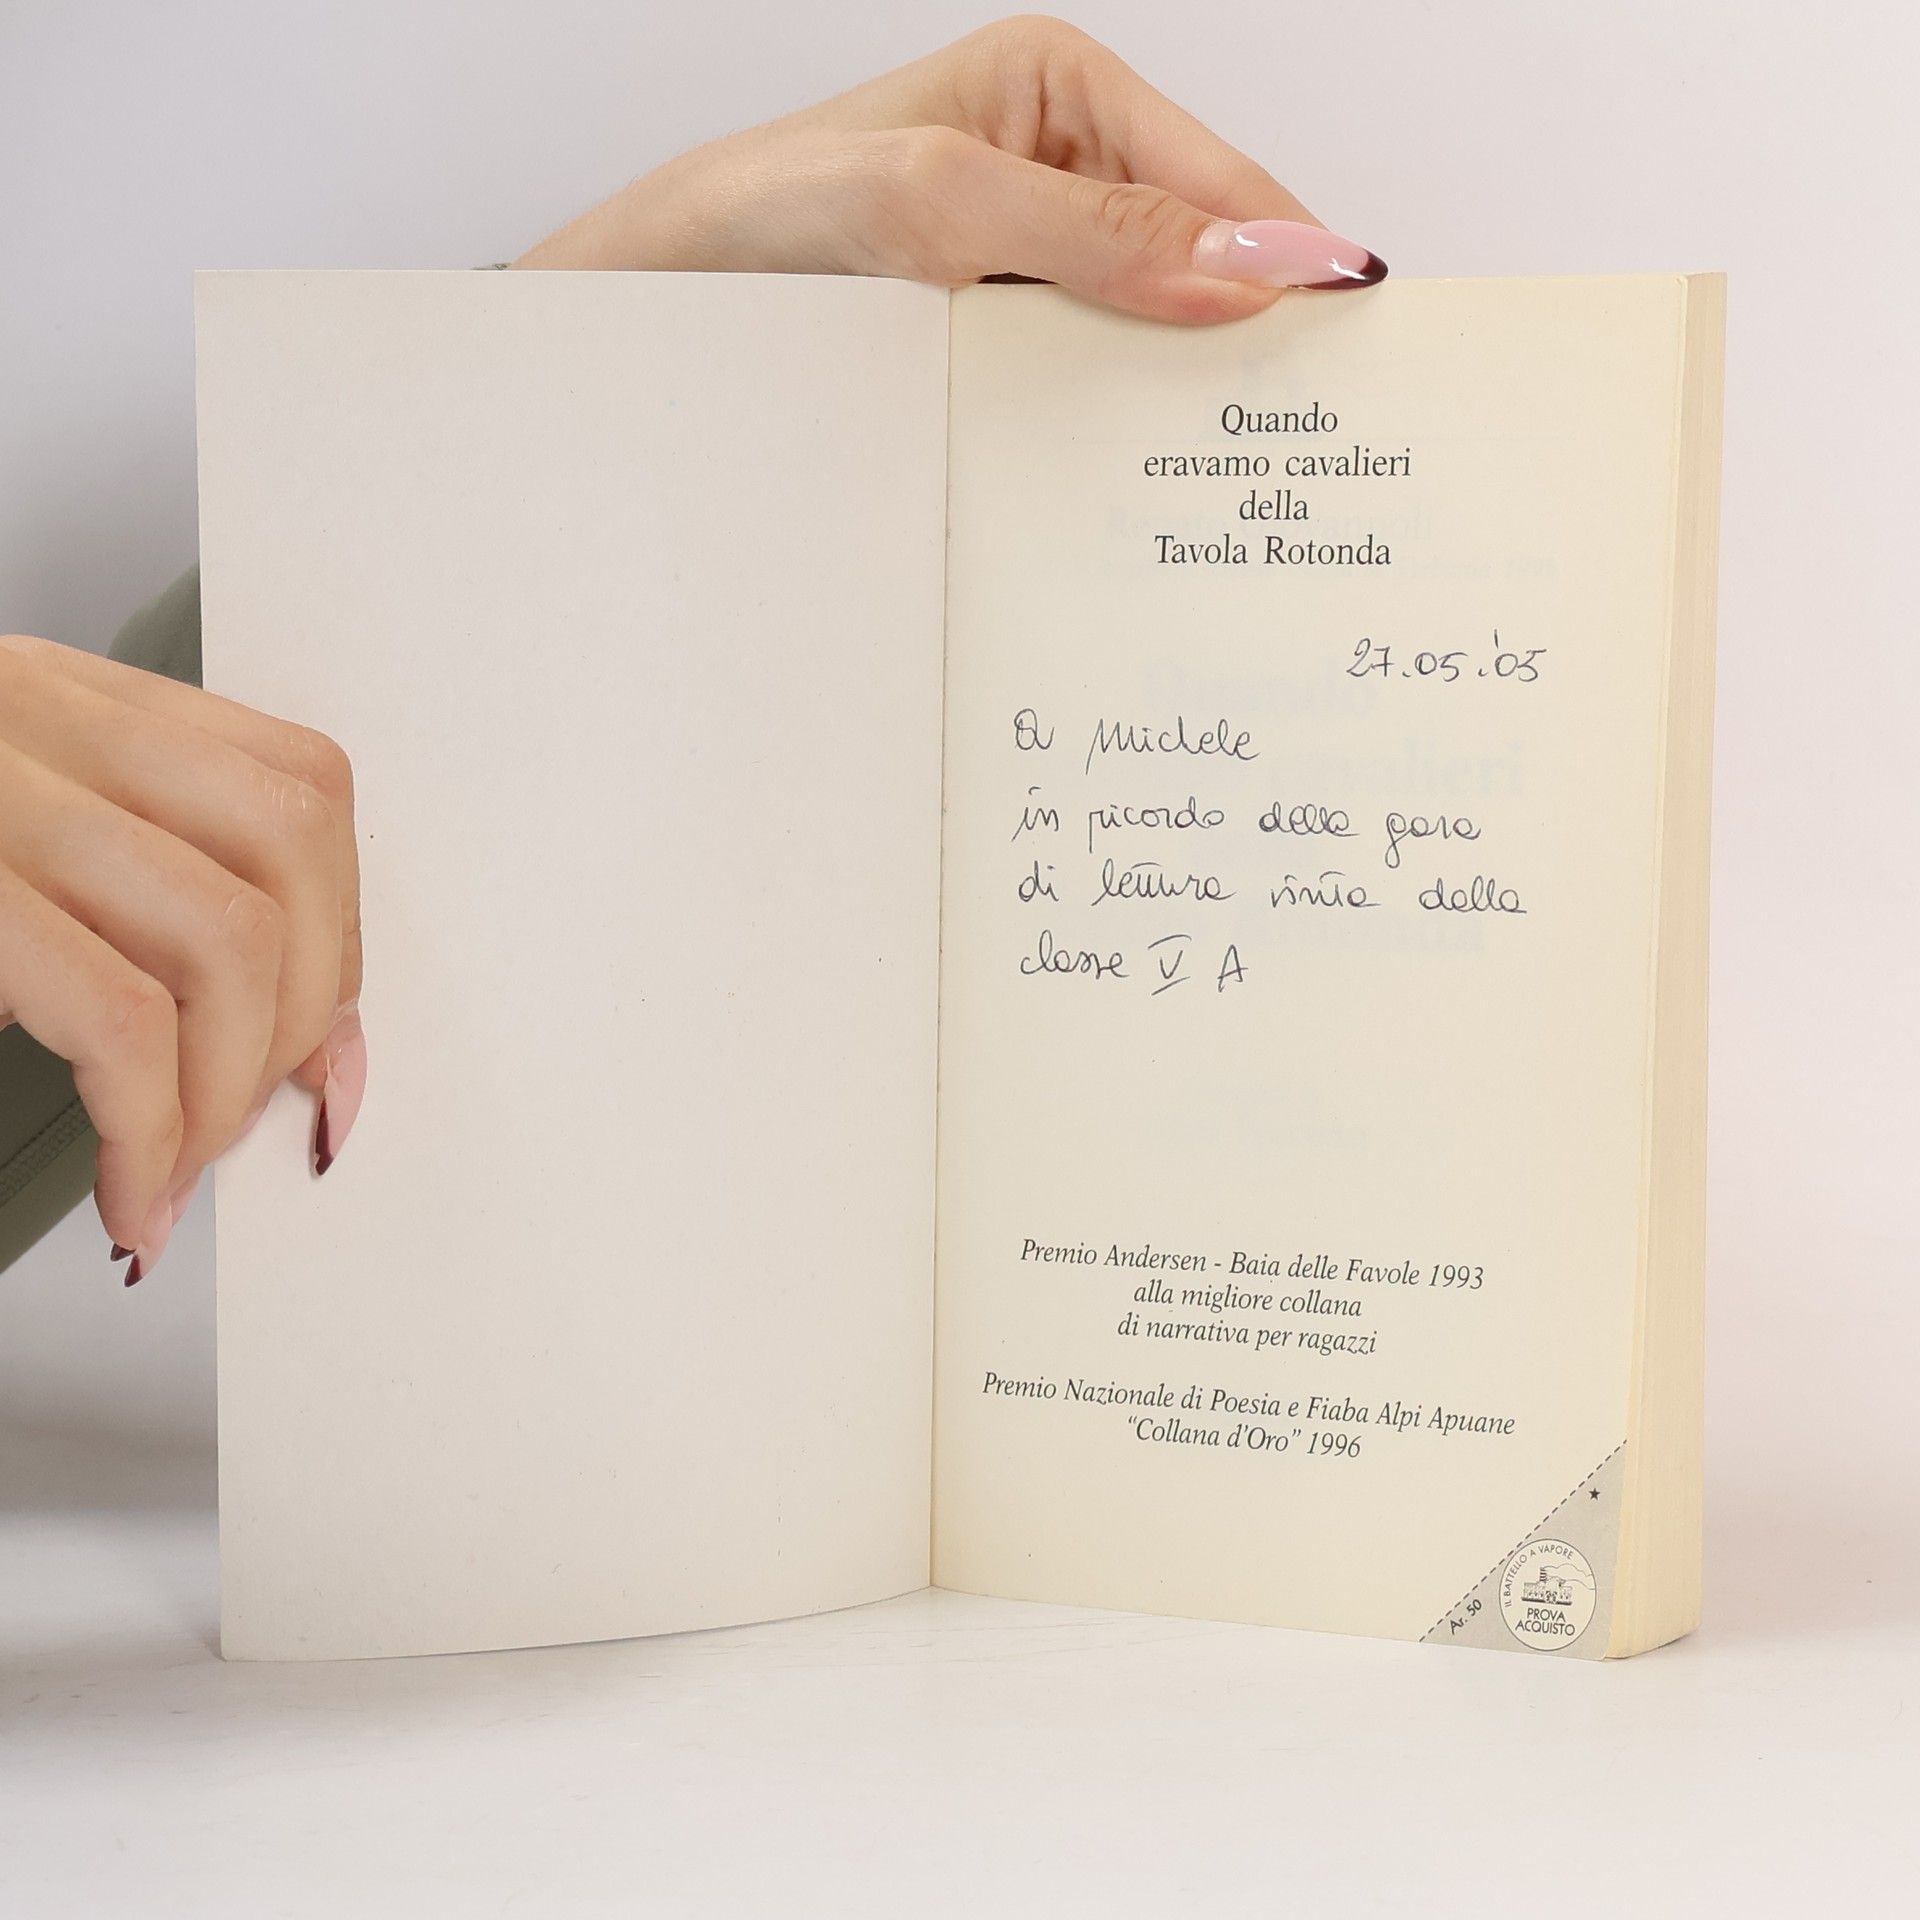 Quando
eravamo cavalieri
della
Tavola Rotonda
27.05.'05
A Michele
in ricordo della gara
di lettura vinta dalla
classe V A
Premio Andersen - Baia delle Favole 1993
alla migliore collana
di narrativa per ragazzi
Premio Nazionale di Poesia e Fiaba Alpi Apuane
“Collana d'Oro” 1996
Ar. 50
IL BATTELLO A VAPORE
PROVA
ACQUISTO